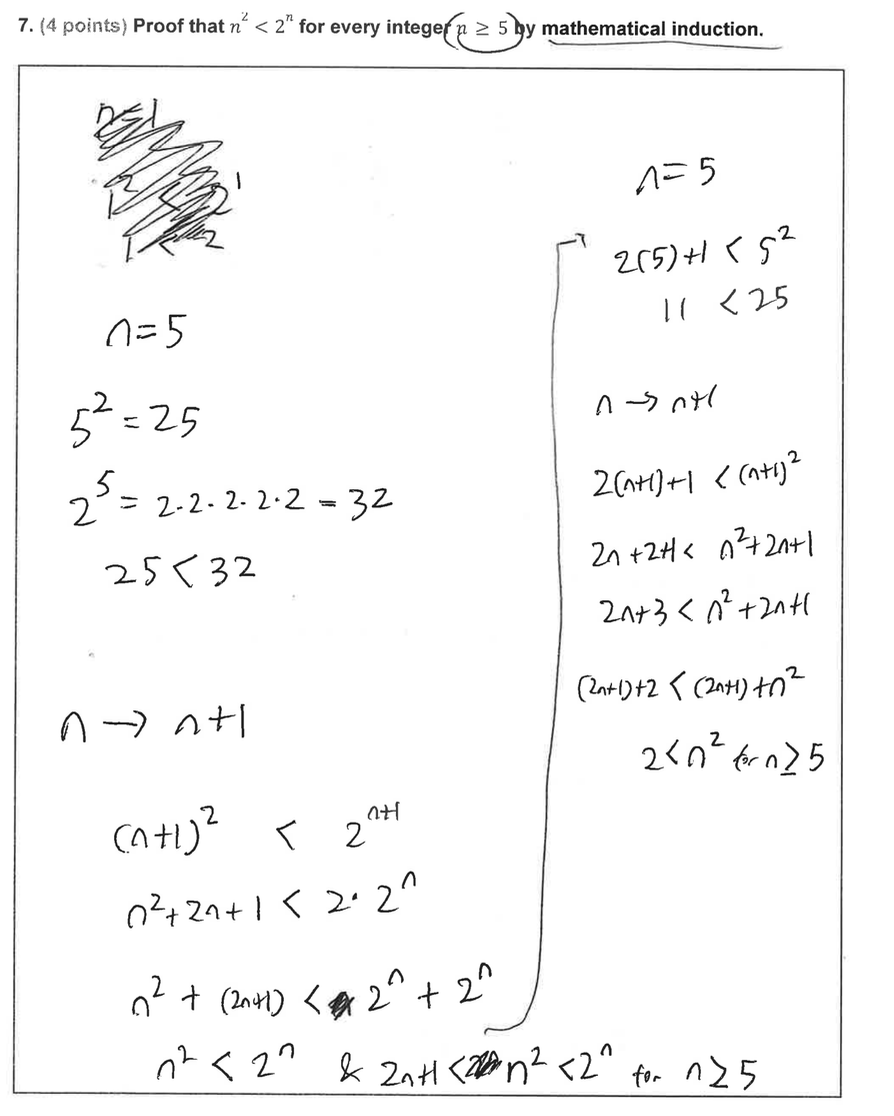 7. (4 points) Proof that n² < 2ⁿ for every integer n ≥ 5 by mathematical induction.
n=1
1² < 2¹
1 < 2
n=5
5² = 25
2⁵ = 2·2·2·2·2 = 32
25 < 32
n → n+1
(n+1)² < 2ⁿ⁺¹
n²+2n+1 < 2·2ⁿ
n² + (2n+1) < 2ⁿ + 2ⁿ
n² < 2ⁿ & 2n+1 < n² < 2ⁿ for n ≥ 5
n=5
2(5)+1 < 5²
11 < 25
n → n+1
2(n+1)+1 < (n+1)²
2n+2+1 < n²+2n+1
2n+3 < n²+2n+1
(2n+1)+2 < (2n+1)+n²
2 < n² for n ≥ 5